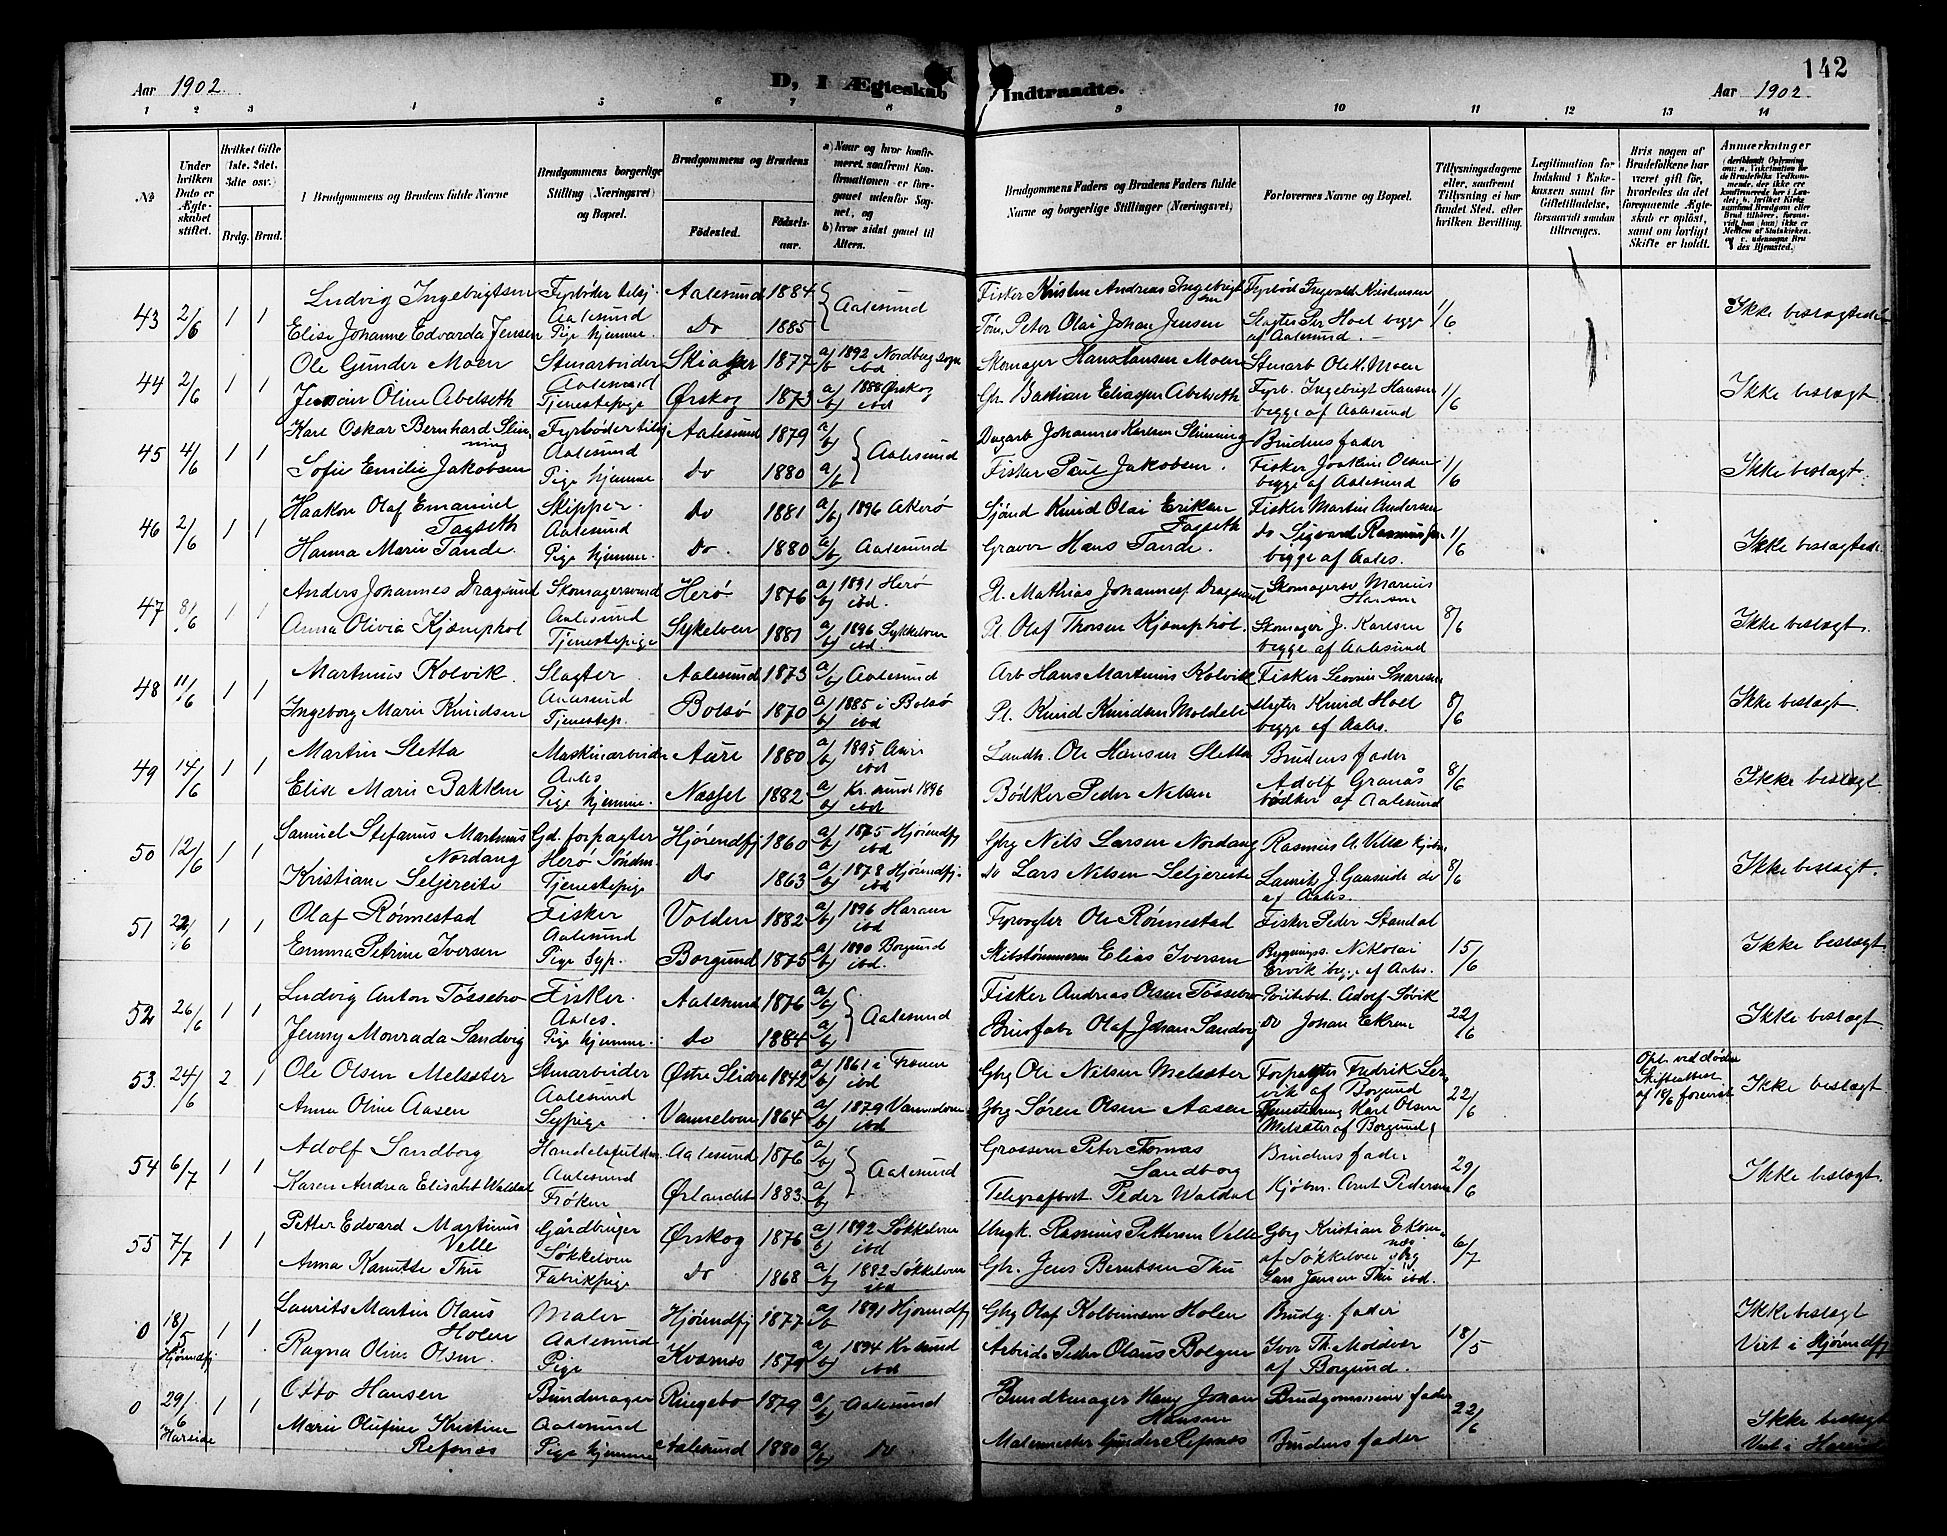 Aar 1902.
D, I Ægteskab Indtraadte.
142
Aar 1902.
1 2 3 4 5 6 7 8 9 10 11 12 13 14
No. | Under hvilken Dato er Ægteskabet stiftet. | Hvilket Gifte (1ste. 2det. 3die osv.) Brdg. Brud. | Brudgommens og Brudens fulde Navne | Brudgommens borgerlige Stilling (Næringsvei) og Bopæl. | Brudgommens og Brudens Fødested. Fødselsaar. | a) Naar og hvor konfirmeret, saafremt Konfirmationen er foregaaet udenfor Sognet, og b) hvor sidst gaaet til Alters. | Brudgommens Faders og Brudens Faders fulde Navne og borgerlige Stillinger (Næringsvei) | Forlovernes Navne og Bopæl. | Tillysningsdagene eller, saafremt Tillysning ei har fundet Sted, efter hvilken Bevilling. | Legitimation for Indskud i Enkekassen samt for Giftetilladelse, forsaavidt saadan tiltrænges. | Hvis nogen af Brudefolkene har været gift før, hvorledes da det foregaaende Ægteskab er opløst, samt om lovligt Skifte er holdt. | Anmærkninger
43 2/6 1 1 Ludvig Ingebrigtsen Fyrbøder tilsj. Aalesund Aalesund 1884 Aalesund Fisker Kristen Andreas Ingebrigtsen Fyrbød Ingvald Kristensen 1/6 Ikke beslagtede
Elise Johanne Edvarda Jensen Pige hjemme. Do 1885 Tøm. Peter Olai Johan Jensen Slagter Per Hoel begge af Aalesund.
44 2/6 1 1 Ole Gunder Moen Stenarbeider Aalesund Skiager 1877 a/b 1892 Nordberg Sogn ibd Skomager Hans Hansen Moen Stenarb Ole K. Moen 1/6 Ikke beslagt.
Oline Abelseth Tjenestepige Ørskog 1873 a/b 1888 Ørskog ibd Gbr. Bastian Eliasen Abelseth Fyrb. Ingebrigt Hansen begge af Aalesund
45 4/6 1 1 Karl Oskar Bernhard Slinning Fyrbøder tilsj Aalesund Aalesund 1879 a/b Aalesund Dagarb Johannes Karlsen Slinning Brudens fader 1/6 Ikke beslagt.
Sofie Emilie Jakobsen Pige hjemme Do 1880 a/b Fisker Paul Jakobsen. Fisker Joakim Olsen begge af Aalesund
46 2/6 1 1 Haakon Olaf Emanuel Fagseth Skipper. Aalesund Do 1881 a/b 1896 Akerø Sjømd Knud Olai Eriksen Fagseth Fisker Martin Andersen 1/6 Ikke beslagtede
Hanna Marie Tande. Pige hjemme. Do. 1880 a/b Aalesund Graver Hans Tande. do Sigvard begge af Aales.
47 8/6 1 1 Anders Johannes Dragsund Skomagersvend Aalesund Herø 1876 a/b 1891 Herø ibd. Pl. Mathias Johannes Dragsund Skomagersv Marius Hansen 8/6 Ikke beslagt.
Anna Olivia Kjæmphol Tjenestepige Sykelven 1881 a/b 1896 Sykkelven ibd. Pl. Olaf Thorsen Kjæmphol. Skomager J. Karlsen begge af Aalesund
48 11/6 1 1 Martinus Kolvik. Slagter. Aalesund Aalesund 1873 a/b Aalesund Arb Hans Martinus Kolvik Fisker 8/6 Ikke beslagt.
Ingeborg Marie Knudsen Tjenestep. Bolsø 1870 a/b 1885 i Bolsø ibd Pl. Knud Knudsen Moldeli slagter Knud Hoel begge af Aales.
49 14/6 1 1 Martin Sletta Maskinarbeider Aales Aure 1880 a/b 1895 Aure ibd Landh. Ole Hansen Sletta Brudens fader 8/6 Ikke beslagt
Elise Marie Bakken Pige hjemme. Næsset 1882 a/b Kr.sund 1896 ibd Bødker Peder Nelsen Adolf Granås bødker af Aalesund
50 12/6 1 1 Samuel Stefanus Martinus Nordang Gd. forpagter Herø Søndm. Hjørendfj 1860 a/b 1875 Hjørendfj ibd Gbrg Nils Larsen Nordang Rasmus A. Velle kjøbm 8/6 Ikke beslagt.
Kristiane Seljereite Tjenestepige Do 1863 a/b 1878 Hjørendfj. ibd Do Lars Nilsen Seljereite do af Aales.
51 22/6 1 1 Olaf Rönnestad Fisker Aalesund Volden 1882 a/b 1896 Haram ibd Fyrvogter Ole Rönnestad Fisker Peder Standal 15/6 Ikke beslagt
Emma Petrine Iversen Pige Syp. Borgund 1875 a/b 1890 Borgund ibd. Skibstømmerm Elias Iversen Bygnings. Nikolai Ervik begge af Aales.
52 26/6 1 1 Ludvig Anton Tössebro Fisker. Aales. Aalesund 1876 a/b Aalesund Fisker Andreas Olsen Tössebro Adolf Sövik 22/6 Ikke beslagt
Jenny Monrada Sandvig Pige hjemme. Do 1884 a/b Olaf Johan Sandvig do Johan Ekrem
53. 24/6 2 1 Ole Olsen Melsæter Stenarbeider Aalesund Østre Slidre 1842 a/b 1861 i Fronen ibd Gbrg Ole Nilsen Melsæter Forpagter Fredrik Lervik af Borgund 22/6 Opl. ved døden Skifteattest af 10/6 forevist Ikke beslagt
Anna Oline Aasen Sypige Vannelven 1864 a/b 1879 Vannelven ibd Gbrg Søren Olsen Aasen Karl Olsen Melsæter af Borgund
54 6/7 1 1 Adolf Sandborg Handelsfuldm. Aalesund Aalesund 1876 a/b Aalesund Grosserer Peter Tomas Sandborg Brudens fader 29/6 Ikke beslagt.
Karen Andrea Elisabet Waldal Frøken Ørlandet 1883 a/b Telegrafbest Peder Waldal Kjøbm. Arnt Pedersen
55 7/7 1 1 Petter Edvard Martinus Velle Gårdbruger Søkkelven Ørskog 1876 a/b 1892 Søkkelven ibd Ungk. Rasmus Pettersen Velle Gbrg Kristian Ekornnæs af Søkkelven gbrg 6/7
Anna Kanutte Thu Fabrikpige Do 1868 a/b 1882 Søkkelven ibd Gbr. Jens Berntsen Thu Lars Jensen Thu ibd.
0 18/5 Hjørendfj 1 1 Laurits Martin Olaus Holen Maler Aalesund Hjørendfj 1877 a/b 1891 Hjørendfj Gbrg Olaf Kolbeinsen Holen Brudg. fader 18/5 Ikke beslagt
Ragna Oline Olsen. Pige Kvernes 1879 a/b 1894 Kr.sund ibd Arbeider Peder Olaus Bolgen Iver Th. Moldvær af Borgund. Viet i Hjørendfj
0 29/6 Hareide 1 1 Otto Hansen Bundtmager Aalesund Ringebo 1879 a/b Aalesund Bundtmager Hans Johan Hansen Brudgommens fader 22/6 Ikke beslagt
Marie Olufine Kristine Refsnæs Pige hjemme Aalesund 1880 a/b Do Malermester Gunder Refsnæs Brudens fader Viet i Hareide